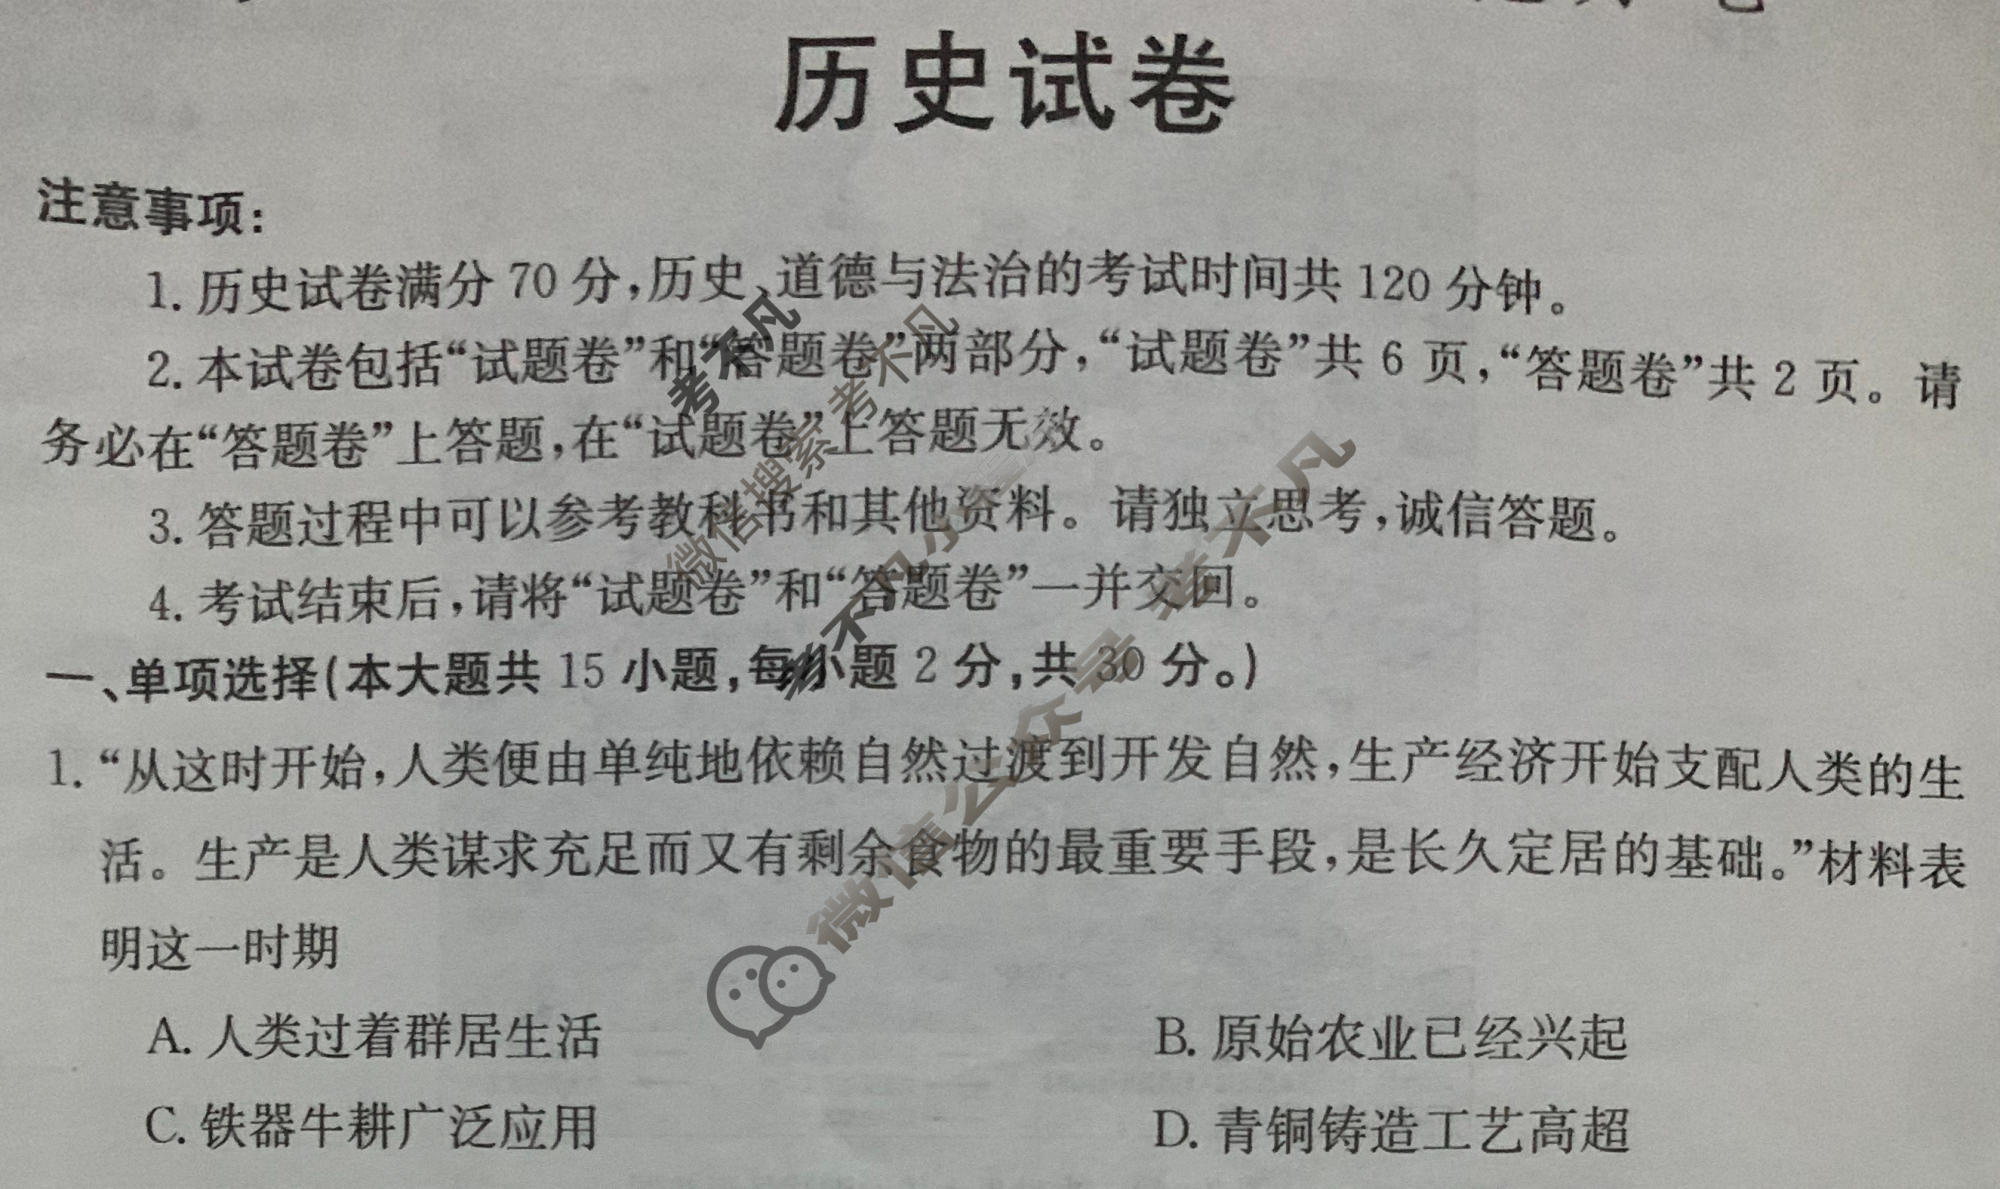 历史试卷
注意事项:
1. 历史试卷满分 70 分,历史、道德与法治的考试时间共 120 分钟。
2. 本试卷包括“试题卷”和“答题卷”两部分,“试题卷”共 6 页,“答题卷”共 2 页。请
务必在“答题卷”上答题,在“试题卷”上答题无效。
3. 答题过程中可以参考教科书和其他资料。请独立思考,诚信答题。
4. 考试结束后,请将“试题卷”和“答题卷”一并交回。
一、单项选择(本大题共 15 小题,每小题 2 分,共 30 分。)
1. “从这时开始,人类便由单纯地依赖自然过渡到开发自然,生产经济开始支配人类的生
活。生产是人类谋求充足而又有剩余食物的最重要手段,是长久定居的基础。”材料表
明这一时期
A. 人类过着群居生活
B. 原始农业已经兴起
C. 铁器牛耕广泛应用
D. 青铜铸造工艺高超
考不凡
微信搜索 考不凡
微信公众号 考不凡